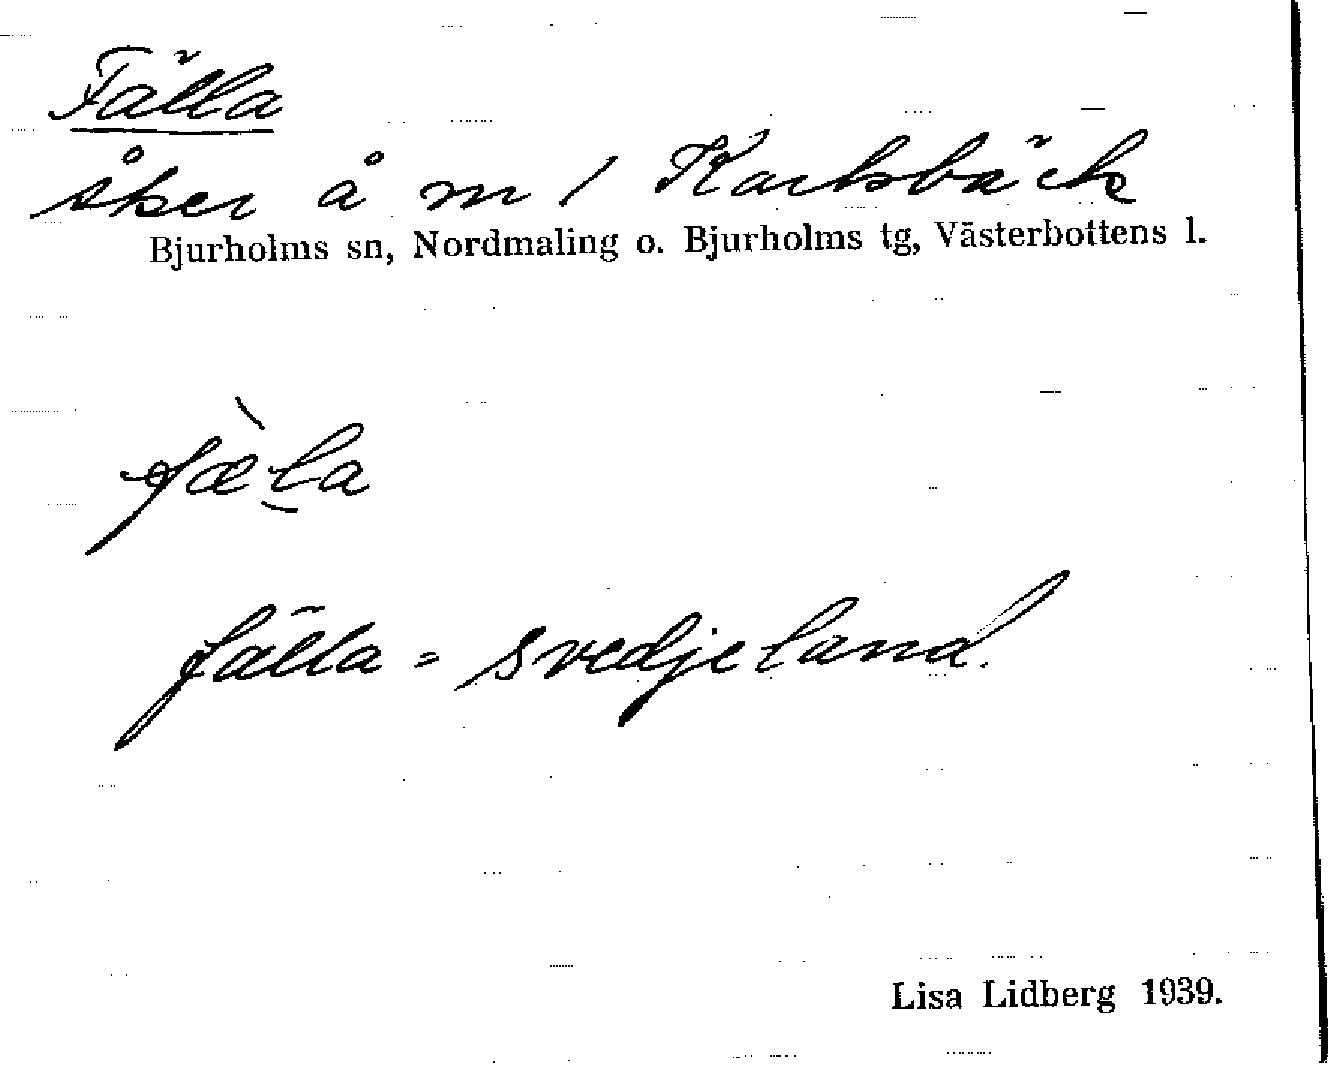 Fälla
åker å m / Karlsbäck
Bjurholms sn, Nordmaling o. Bjurholms tg, Västerbottens l.
fæ̀l̮a
fälla = svedjeland.
Lisa Lidberg 1939.